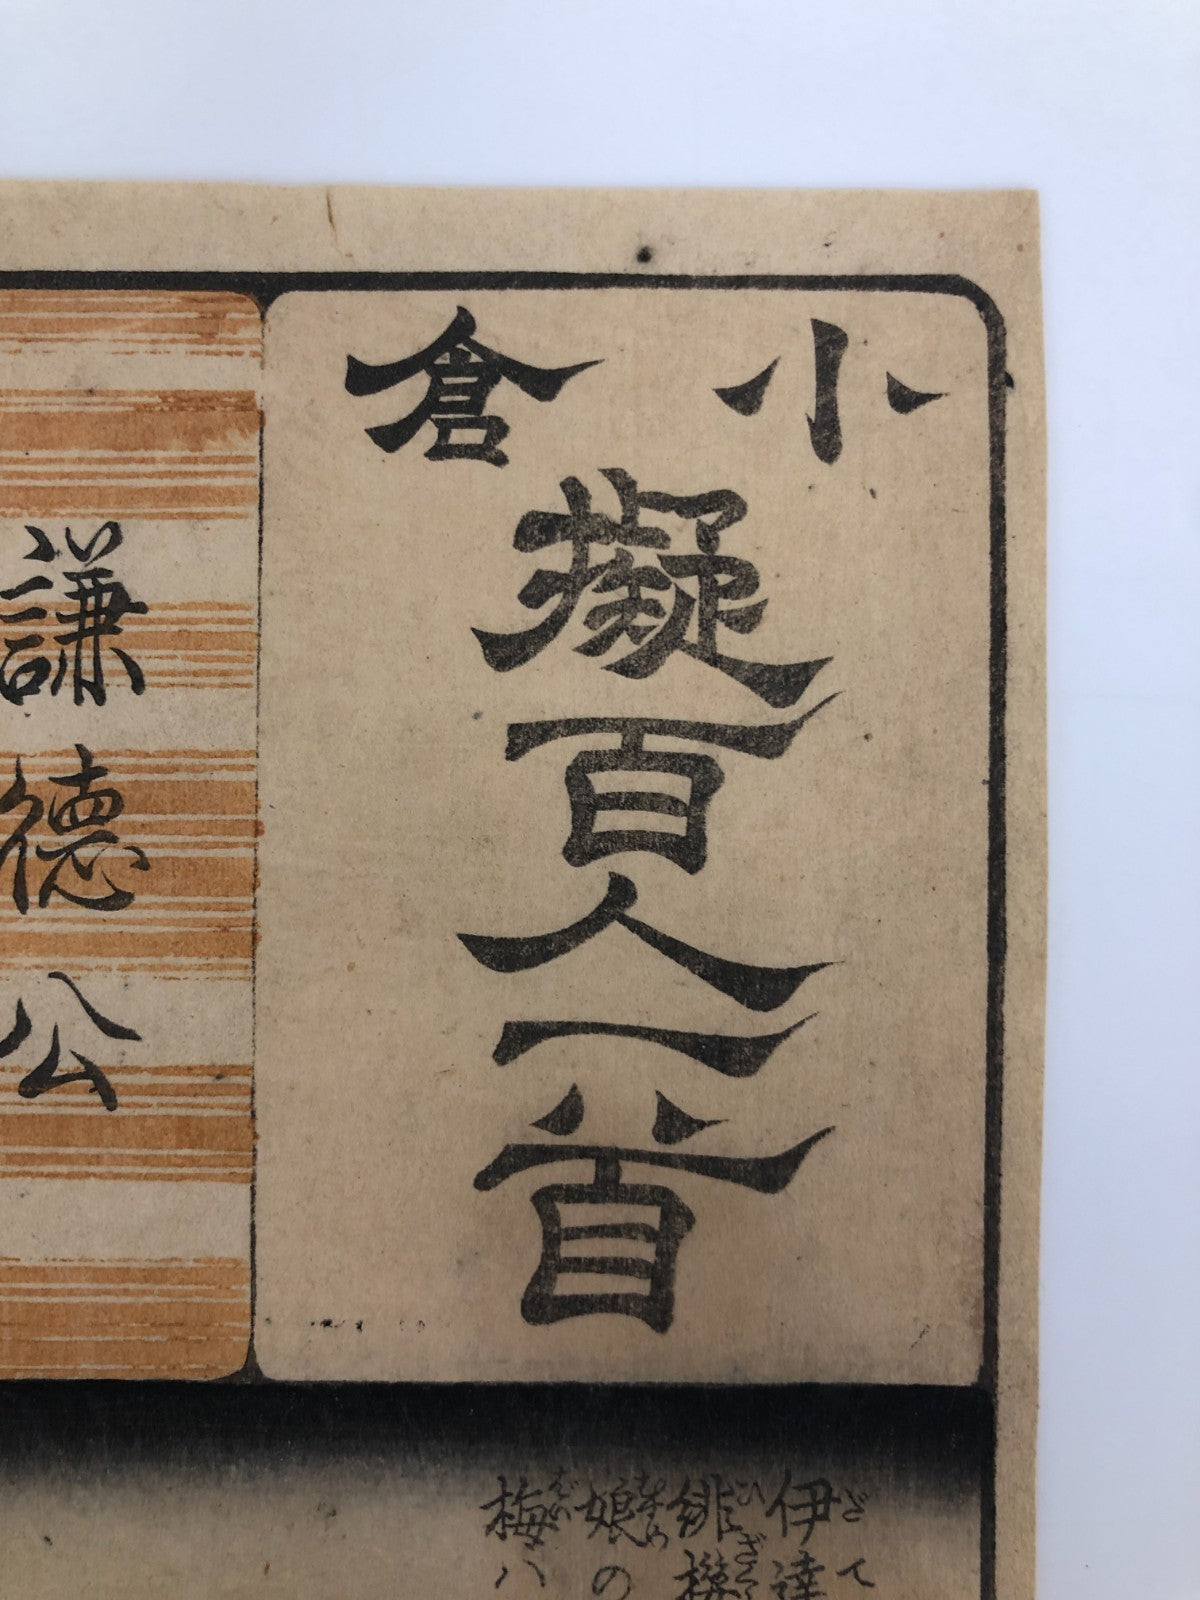 小倉
擬百人一首
謙德公
伊達
緋桜
娘の
梅ハ